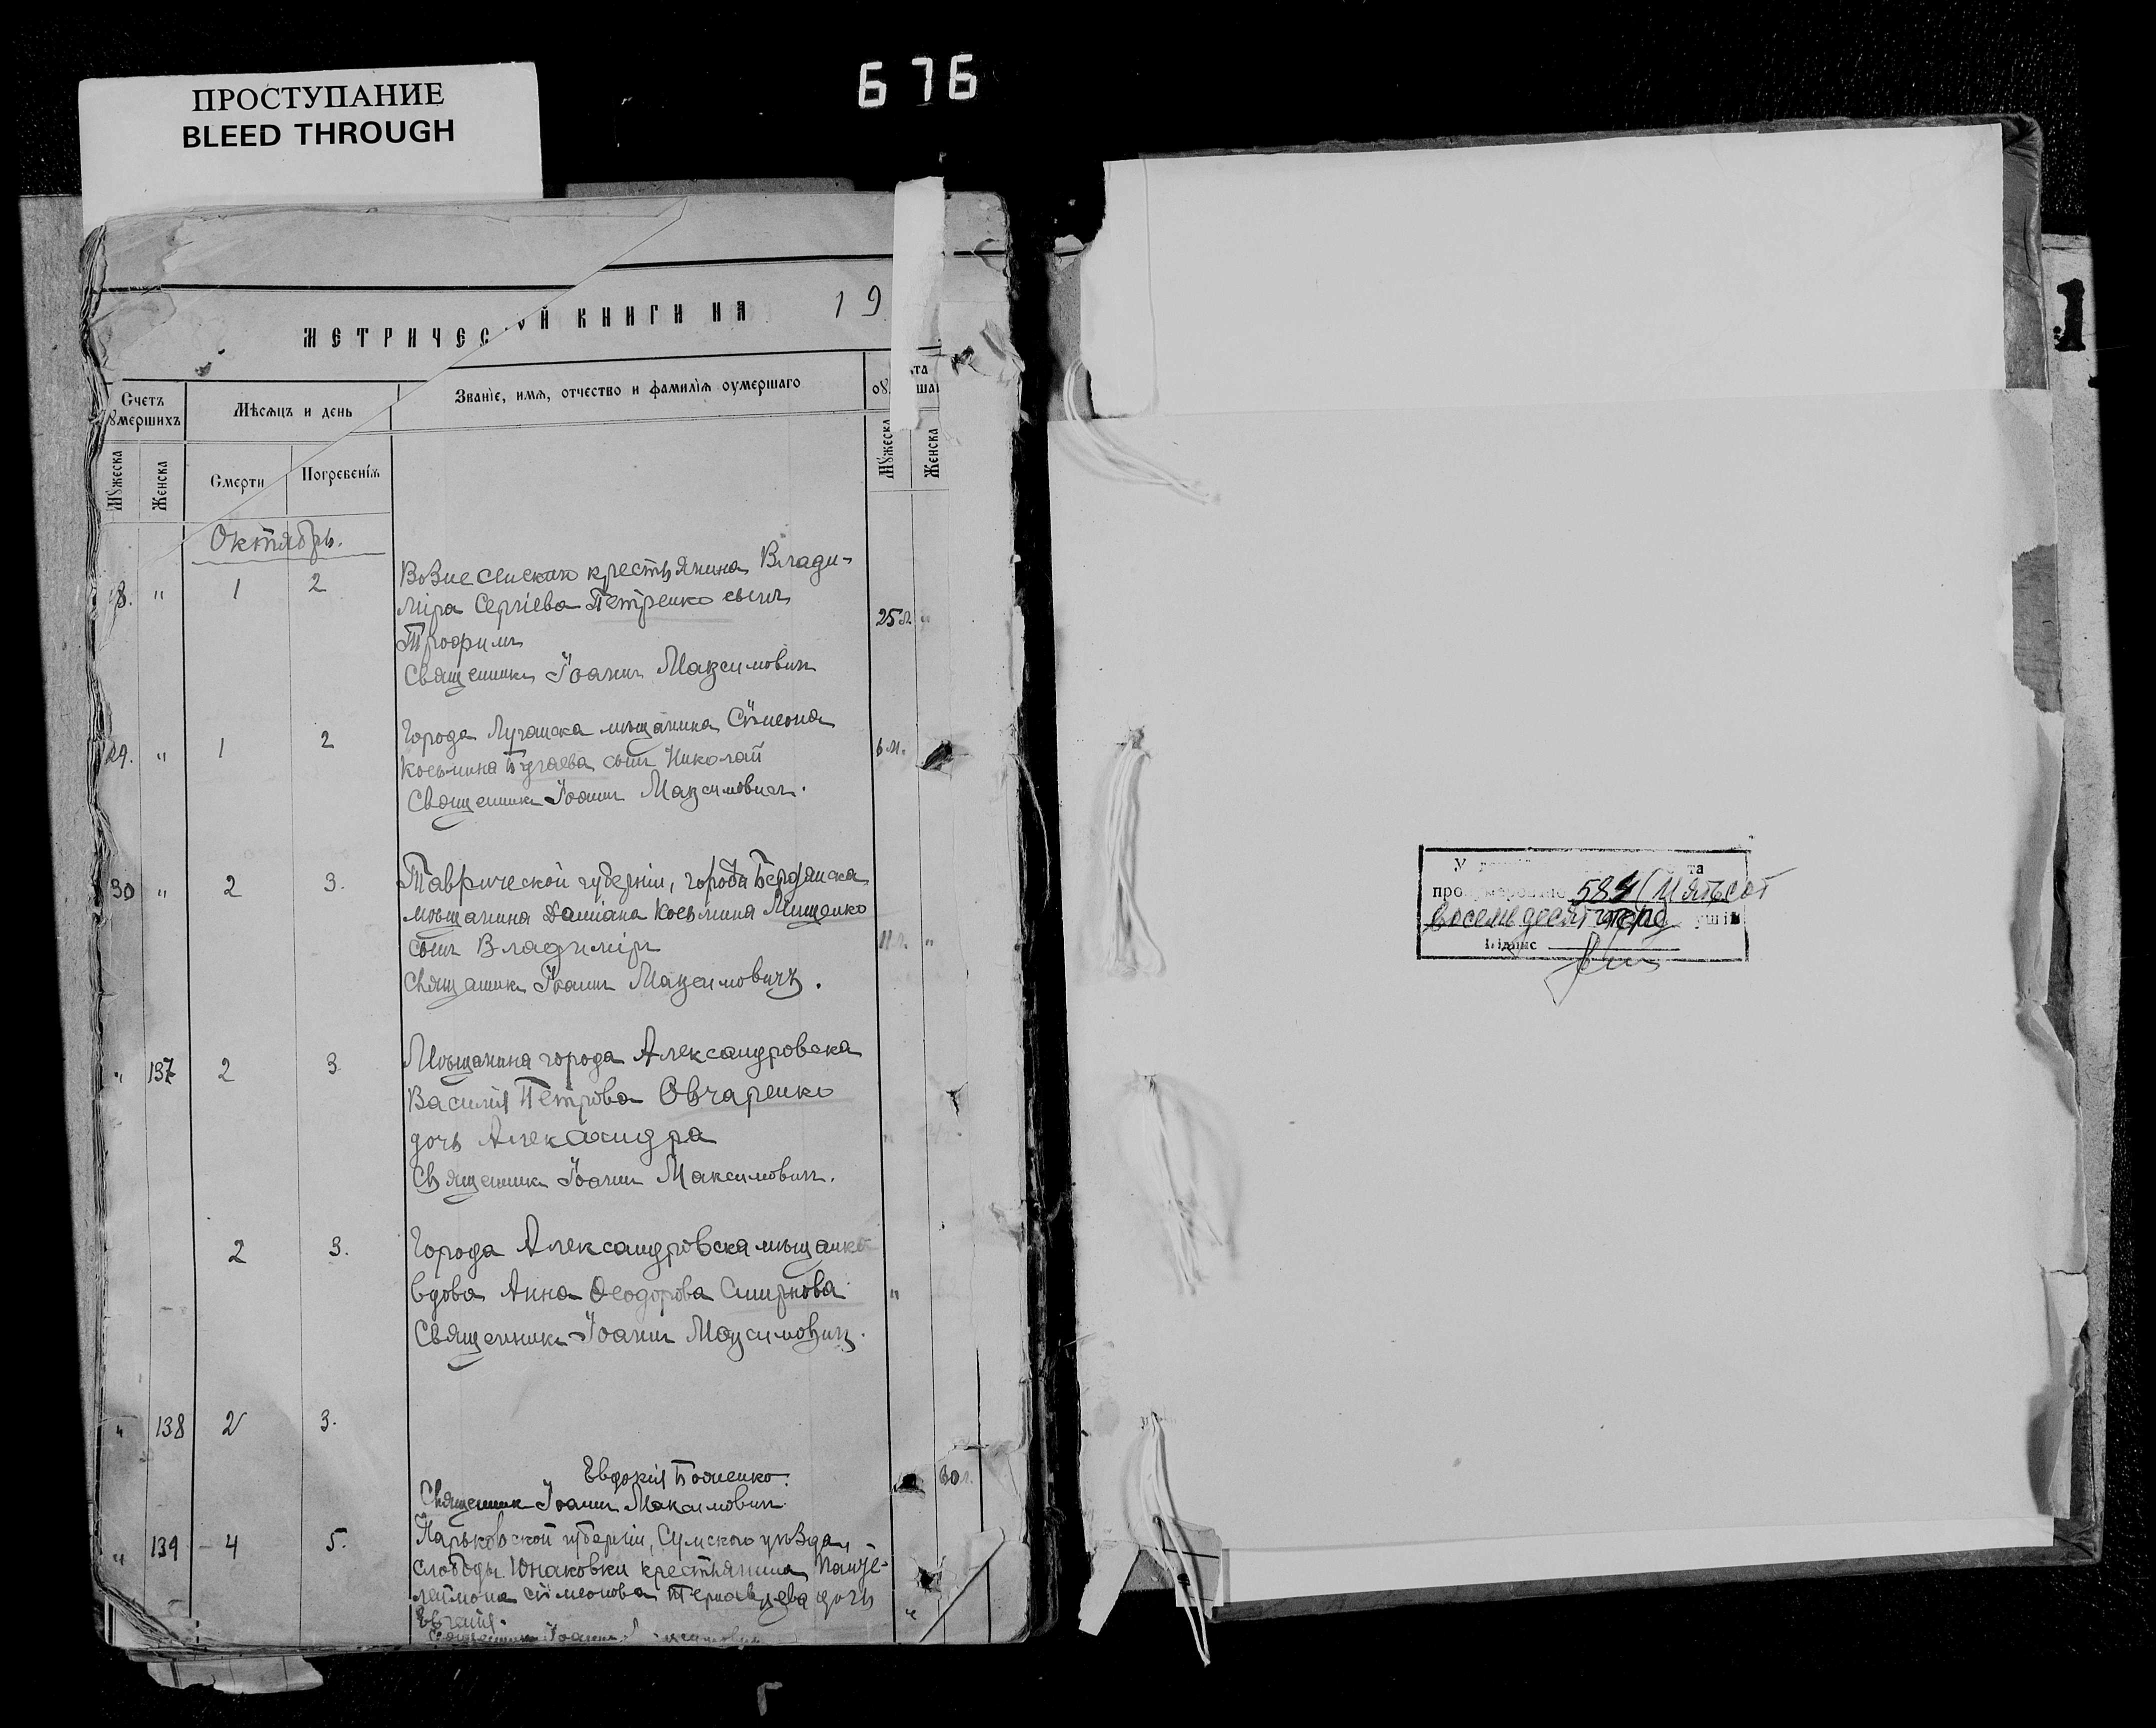 ПРОСТУПАНИЕ
BLEED THROUGH
676
1
МЕТРИЧЕС ОЙ КНИГИ НА 19
Счетъ ȣмершихъ
Мѣсѧцъ и день
Званіе, имѧ, отчество и фамиліѧ оумершаго
Мȣжеска
Женска
Смерти
Погребеніѧ
Мȣжеска
Женска
Октябрь.
28. " 1 2 Вознесенскаго крестьянина Влади-
міра Сергіева Петренко сынъ
25 л. "
Трофимъ
Священникъ Іоаннъ Максимовичъ
29. " 1 2 Города Луганска мѣщанина Сѵмеона
6 м.
Косьмина Бугаева сынъ Николай
Священникъ Іоаннъ Максимовичъ.
30 " 2 3. Таврической губерніи, города Бердянска
мѣщанина Даміана Косьмина Мищенко
сынъ Владиміръ
11 л. "
Священникъ Іоаннъ Максимовичъ.
" 137 2 3 Мѣщанина города Александровска
Василія Петрова Овчаренко
дочь Александра
Священникъ Іоаннъ Максимовичъ.
2 3. Города Александровска мѣщанка
вдова Анна Ѳеодорова Смирнова
"
Священникъ Іоаннъ Максимовичъ.
" 138 2 3.
Евдокія Боженко.
60 л.
Священникъ Іоаннъ Максимовичъ.
" 139 4 5. Харьковской губерніи, Сумского уѣзда,
слободы Юнаковки крестьянина Панте-
леймона Сѵмеонова дочь
"
Евгенія.
Священникъ Іоаннъ Максимовичъ
584 (Пятьсот
восемьдесят чотири
Підпис